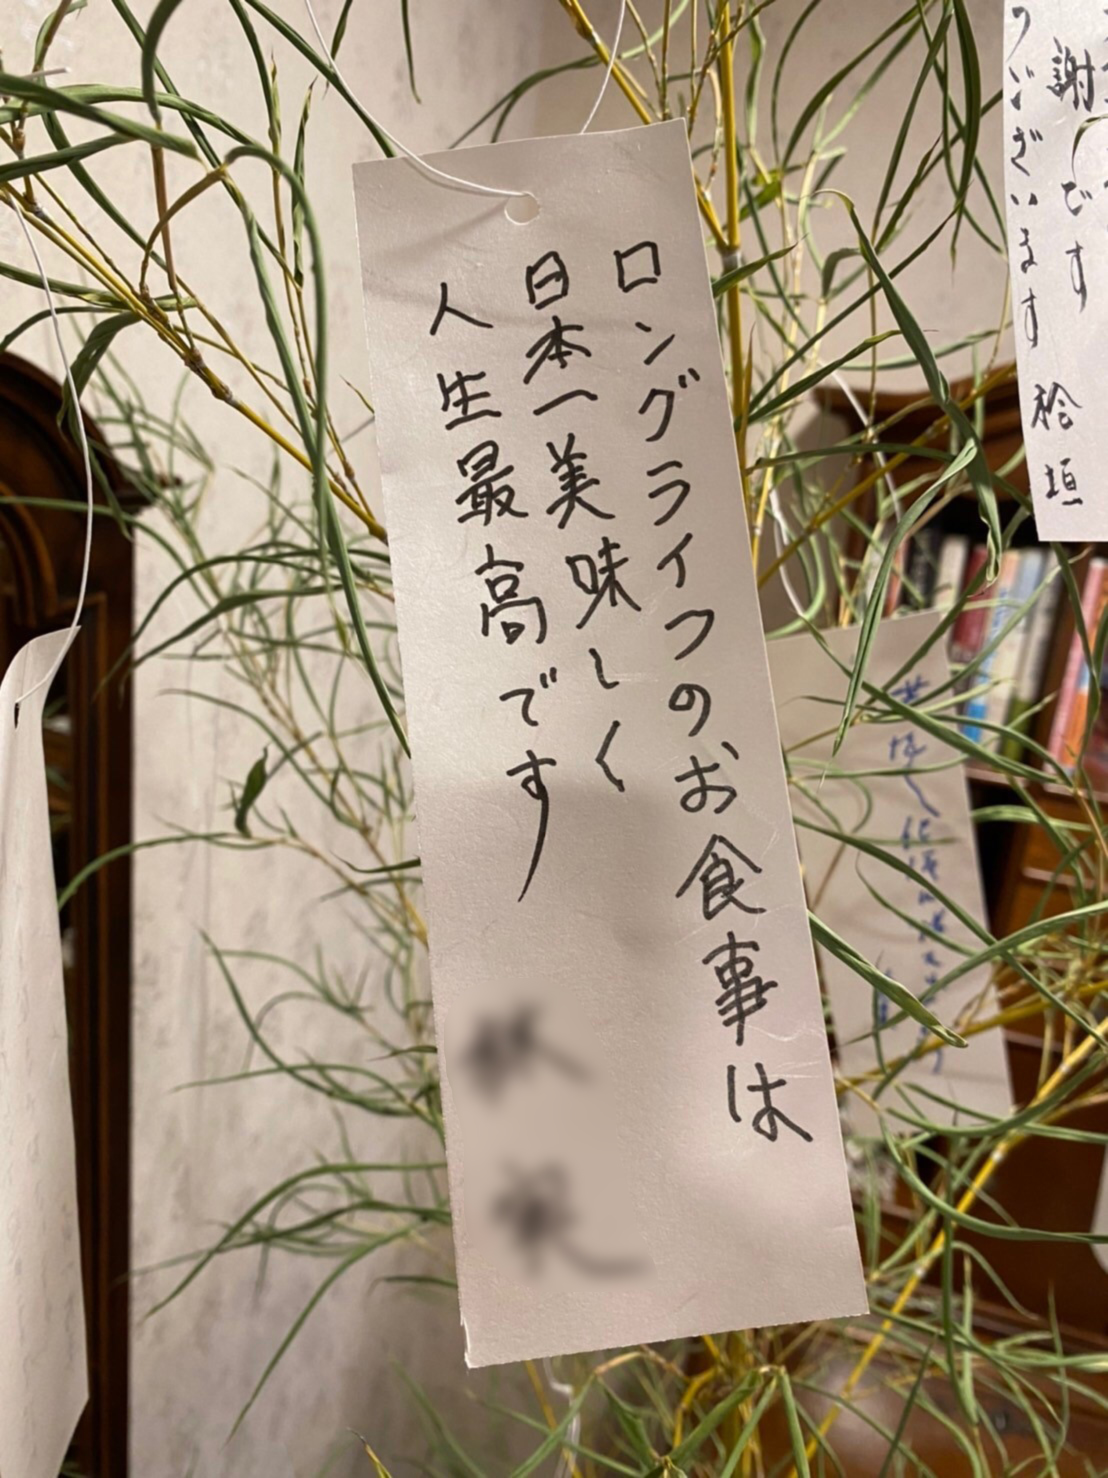 ロングライフのお食事は
日本一美味しく
人生最高です
謝です
うございます 桧垣